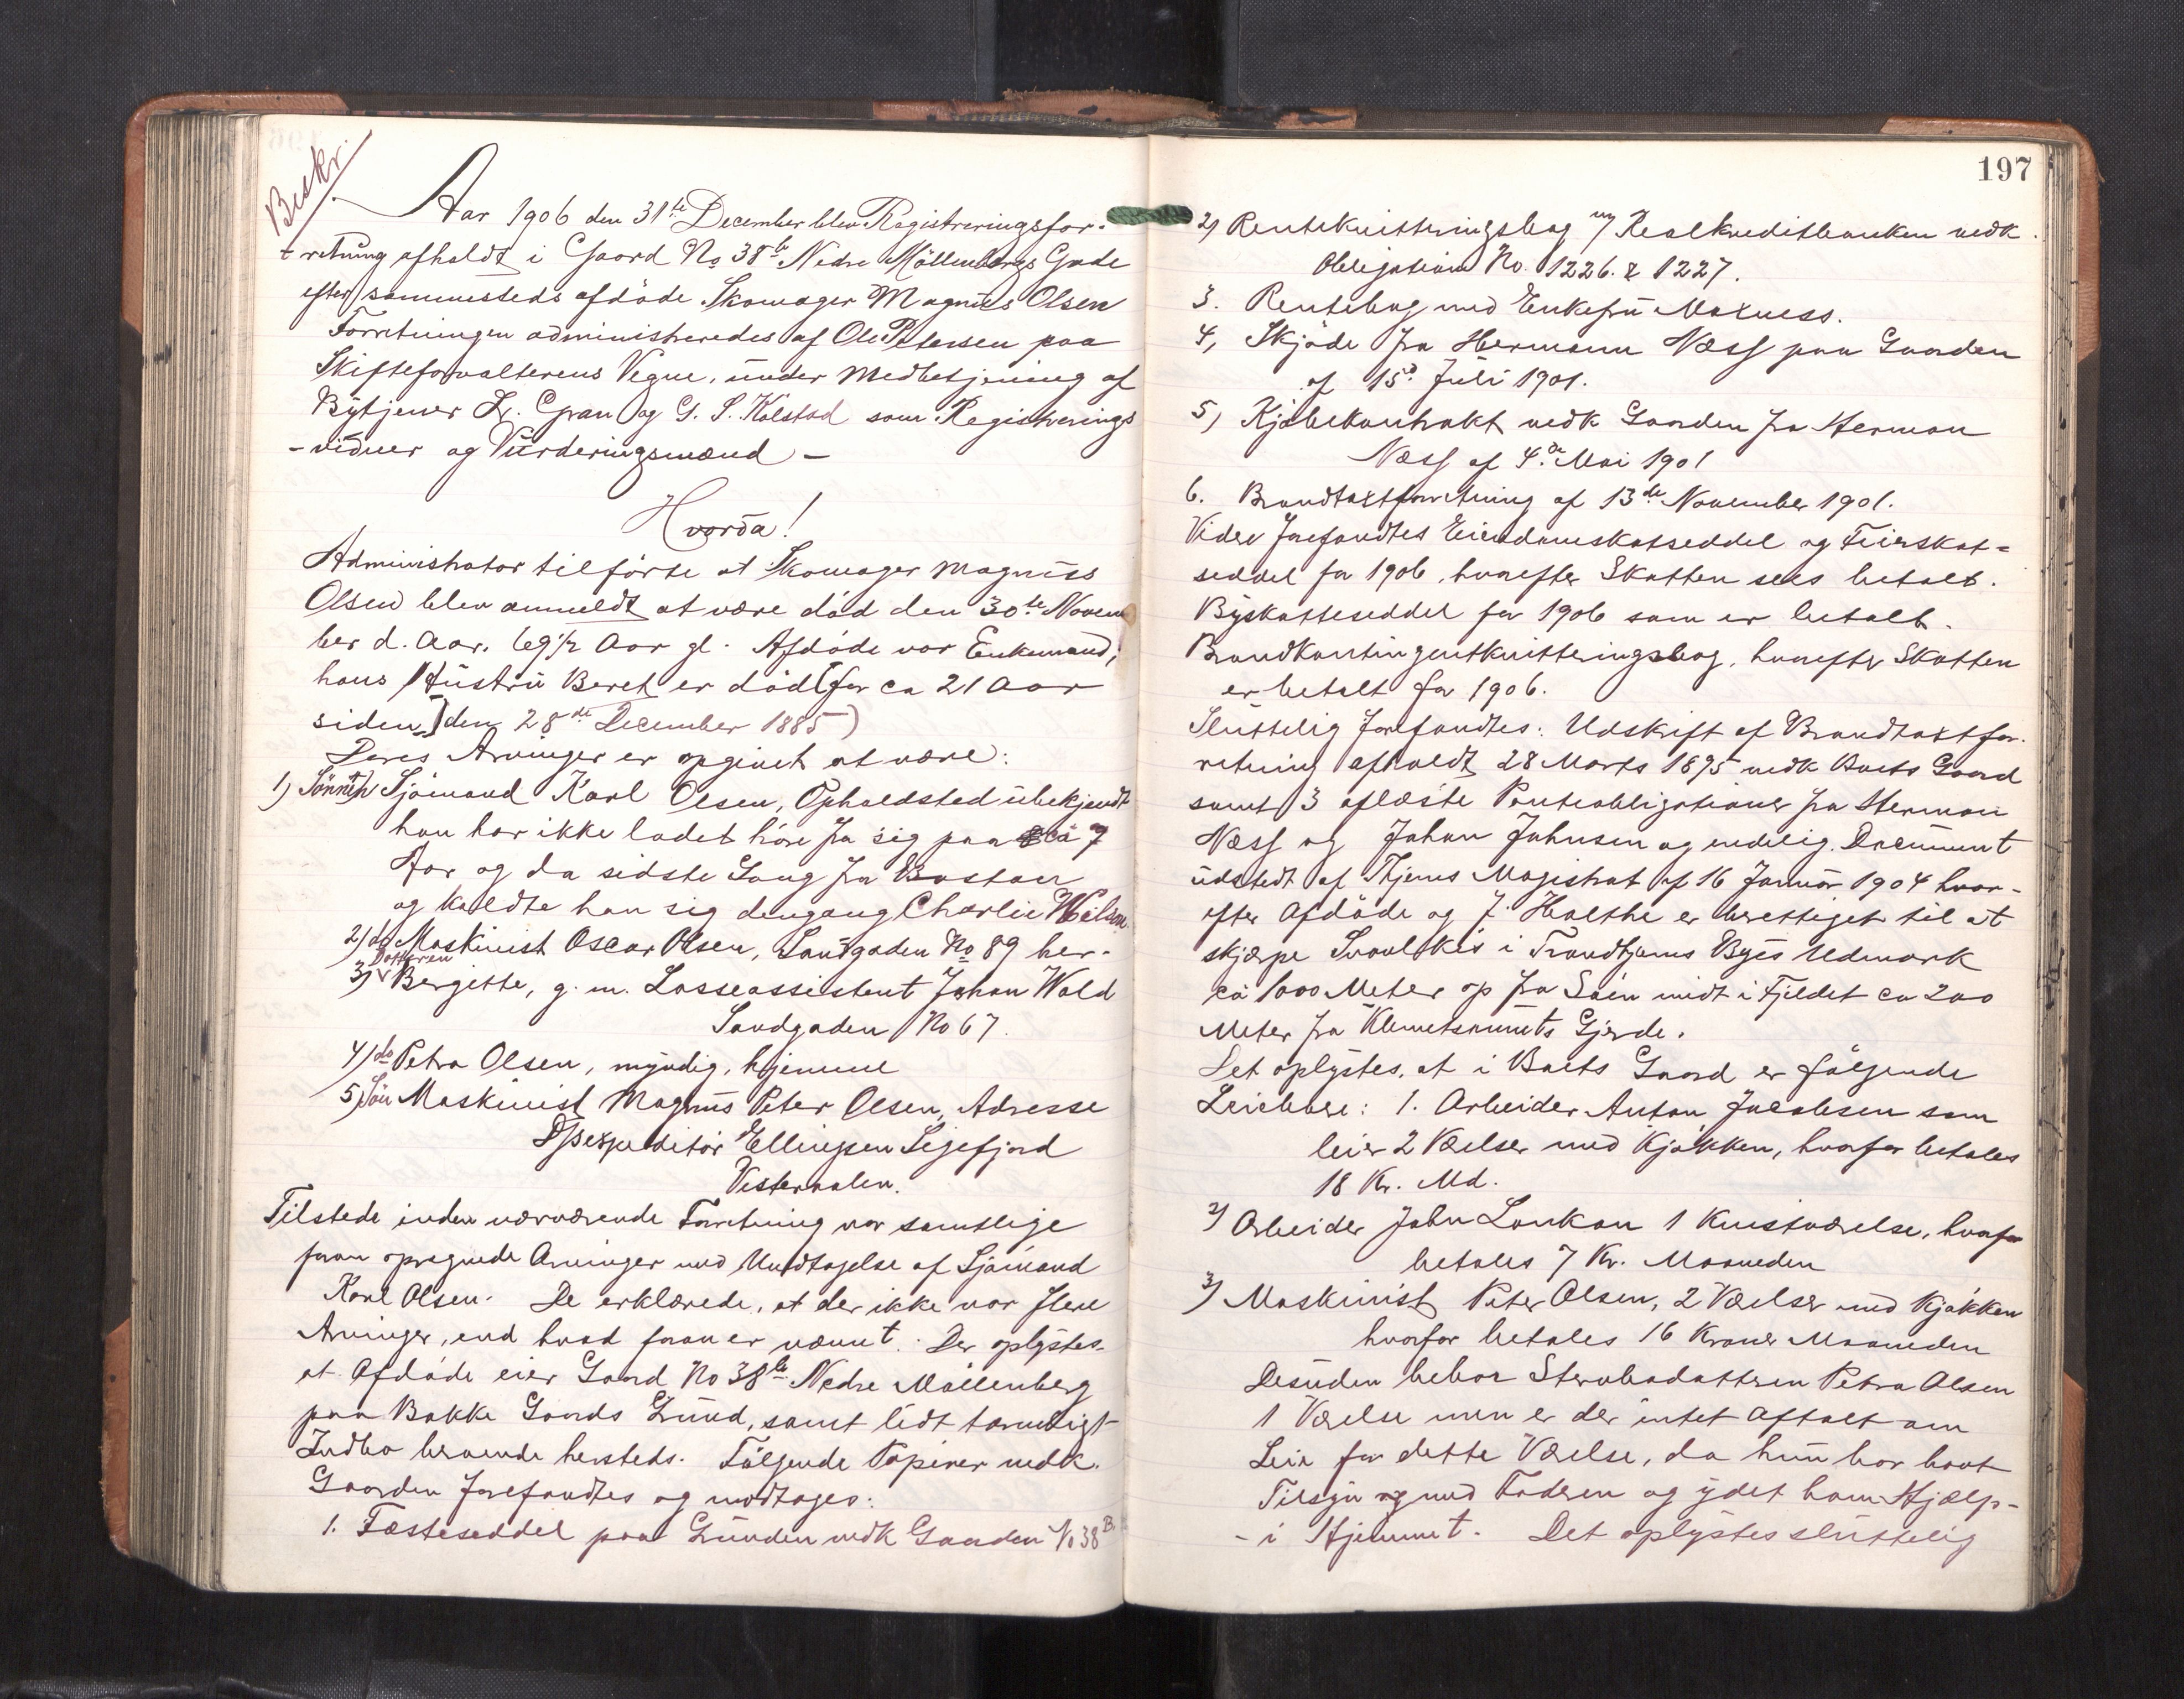 Beskr.
Aar 1906 den 31te December blev Registreringsfor-
retning afholdt i Gaard No 38b Nedre Möllenbergs Gade
efter sammesteds afdöde Skomager Magnus Olsen
Forretningen administreredes af Ole Petersen paa
Skifteforvalterens Vegne, under Medbetjening af
Bytjener Gran og G. S. Kolstad som Registrerings
-vidner og Vurderingsmænd -
Hvorda!
Administrator tilförte at Skomager Magnus
Olsen blev anmeldt at være död den 30te Novem
ber d. Aar. 69½ Aar gl. Afdöde var Enkemand;
hans Hustru Beret er död [for ca 21 Aar
siden] den 28de December 1885)
Deres Arvinger er opgivet at være:
1) Sönnen Sjömand Karl Olsen, Opholdsted ubekjendt
han har ikke ladet höre fra sig paa ca 7
Aar og da sidste Gang fra Boston
og kaldte han sig dengang Charlie Wilson
2) do Maskinist Oscar Olsen, Sandgaden No 89 her.
Datteren
3) Bergitte, g. m. Losseassistent Johan Wold
Sandgaden No 67.
4) do Petra Olsen, myndig, hjemme
5) Sön Maskinist Magnus Peter Olsen, Adresse
Dpsexpeditör Ellingsen Sigefjord
Vesteraalen.
Tilstede inden nærværende Forretning var samtlige
foran opregnede Arvinger med Undtagelse af Sjömand
Karl Olsen. De erklærede, at der ikke var flere
Arvinger, end hvad foran er nævnt. Der oplystes
at Afdöde eier Gaard No 38b Nedre Möllenberg
paa Bakke Gaards Grund, samt lidt tarveligt
Indbo beroende hersteds. Fölgende Papirer vedk.
Gaarden forefandtes og modtoges:
1. Fæsteseddel paa Grunden vedk Gaarden No 38 B.
197
2) Rentekvitteringsbog m/ Realkreditbanken vedk.
Obligation No. 1226. & 1227.
3. Rentebog med Enkefru Moxness.
4, Skjöde fra Hermann Næss paa Gaarden
af 15d Juli 1901.
5) Kjöbekontrakt vedk Gaarden fra Herman
Næss af 4de Mai 1901
6. Brandtaxtforretning af 13de November 1901.
Videre forefandtes Eiendomsskatseddel og Feierskat=
seddel for 1906, hvorefter Skatten sees betalt.
Byskatteseddel for 1906 som er betalt.
Brandkontingentkvitteringsbog, hvorefter Skatten
er betalt for 1906.
Sluttelig forefandtes: Udskrift af Brandtaxtfor-
retning afholdt 28 Marts 1895 vedk Boets Gaard
samt 3 aflæste Panteobligationer fra Herman
Næss og Johan Johnsen og endelig Document
udstedt af Thjems Magistrat af 16 Januar 1904 hvor-
efter Afdöde og J. Holthe er berettiget til at
skjærpe Svovlkis i Trondhjems Byes Udmark
ca 1000 Meter op fra Söen midt i Fjeldet ca 200
Meter fra Klemetsaunets Gjerde.
Det oplystes, at i Boets Gaard er fölgende
Leieboere: 1. Arbeider Anton Jacobsen som
leier 2 Værelser med Kjökken, hvorfor betales
18 Kr. Md.
2) Arbeider John Lonkan 1 Kvistværelse, hvorfor
betales 7 Kr. Maaneden
3) Maskinist Peter Olsen, 2 Værelser med Kjökken
hvorfor betales 16 Kroner Maaneden
Desuden bebor Stervbodatteren Petra Olsen
1 Værelse men er der intet Aftalt om
Leie for dette Værelse, da hun har havt
Tilsyn med Faderen og ydet ham Hjælp-
- i Hjemmet. Det oplystes sluttelig